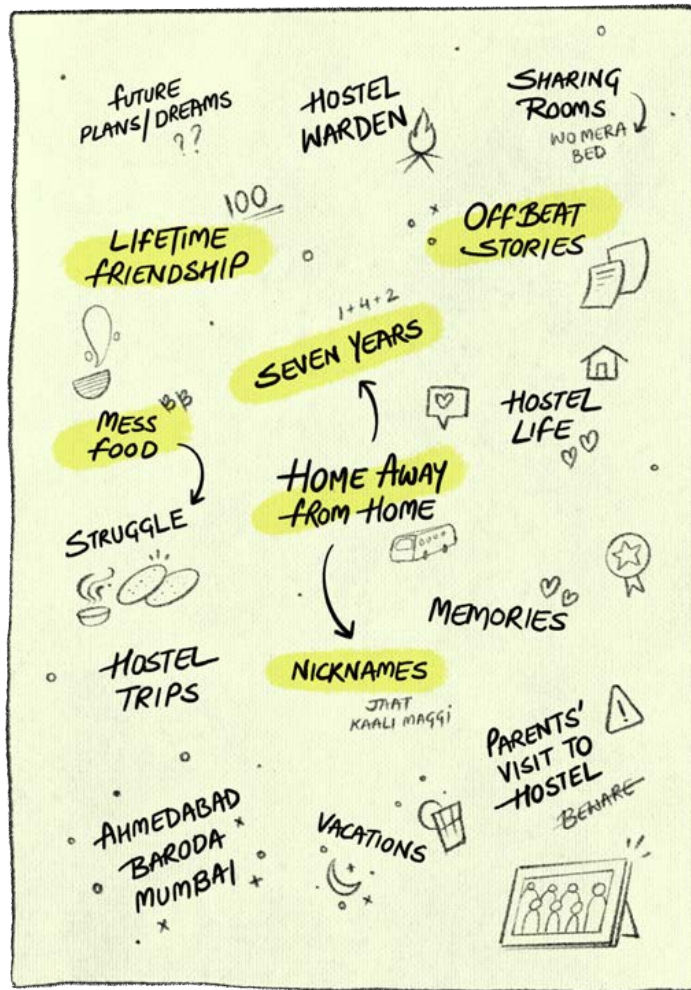 FUTURE
PLANS/DREAMS
??
HOSTEL
WARDEN
SHARING
ROOMS
WO MERA
BED
100
LIFETIME
FRIENDSHIP
OFFBEAT
STORIES
1+4+2
SEVEN YEARS
MESS
FOOD
HOSTEL
LIFE
HOME AWAY
FROM HOME
STRUGGLE
MEMORIES
HOSTEL
TRIPS
NICKNAMES
JAAT
KAALI MAGGI
PARENTS'
VISIT TO
HOSTEL
BEWARE
AHMEDABAD
BARODA
MUMBAI
VACATIONS